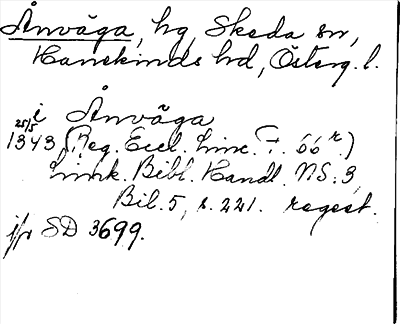 Ånväga, hg, Skeda sn,
Hanekinds hd, Österg. l.
i Ånväga
25/5 1343 (Reg. Eccl. Linc. F. 66r)
Link. Bibl. Handl. N.S. 3,
Bil. 5, s. 221. regest.
jfr SD 3699.